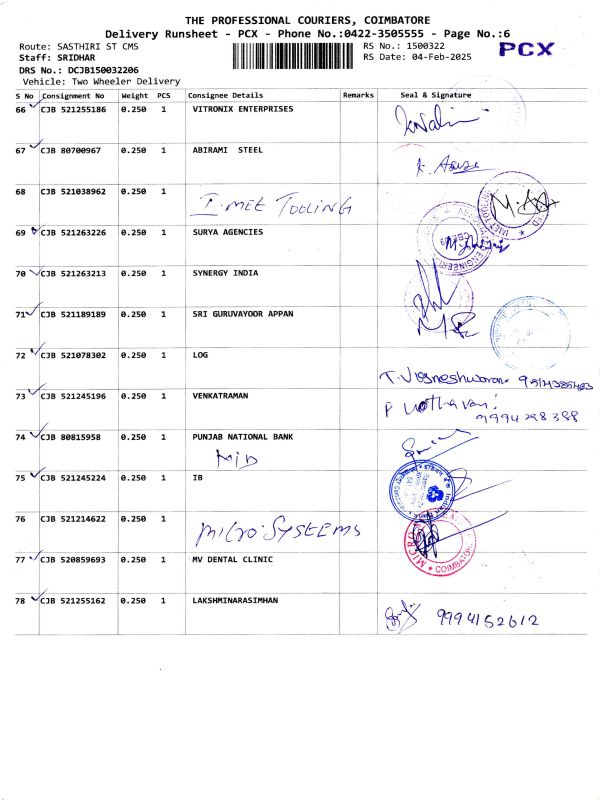 THE PROFESSIONAL COURIERS, COIMBATORE
Delivery Runsheet - PCX - Phone No.:0422-3505555 - Page No.:6
Route: SASTHIRI ST CMS
RS No.: 1500322
PCX
Staff: SRIDHAR
RS Date: 04-Feb-2025
DRS No.: DCJB150032206
Vehicle: Two Wheeler Delivery
S No Consignment No Weight PCS Consignee Details Remarks Seal & Signature
66 CJB 521255186 0.250 1 VITRONIX ENTERPRISES
67 CJB 80700967 0.250 1 ABIRAMI STEEL
68 CJB 521038962 0.250 1
I-MET TOOLING
69 CJB 521263226 0.250 1 SURYA AGENCIES
70 CJB 521263213 0.250 1 SYNERGY INDIA
71 CJB 521189189 0.250 1 SRI GURUVAYOOR APPAN
72 CJB 521078302 0.250 1 LOG
T. Vigneshwaran
73 CJB 521245196 0.250 1 VENKATRAMAN
9994298388
74 CJB 80815958 0.250 1 PUNJAB NATIONAL BANK
75 CJB 521245224 0.250 1 IB
76 CJB 521214622 0.250 1
MICRO-SYSTEEMS
MICRO
COIMBATORE
77 CJB 520859693 0.250 1 MV DENTAL CLINIC
78 CJB 521255162 0.250 1 LAKSHMINARASIMHAN
9994152612